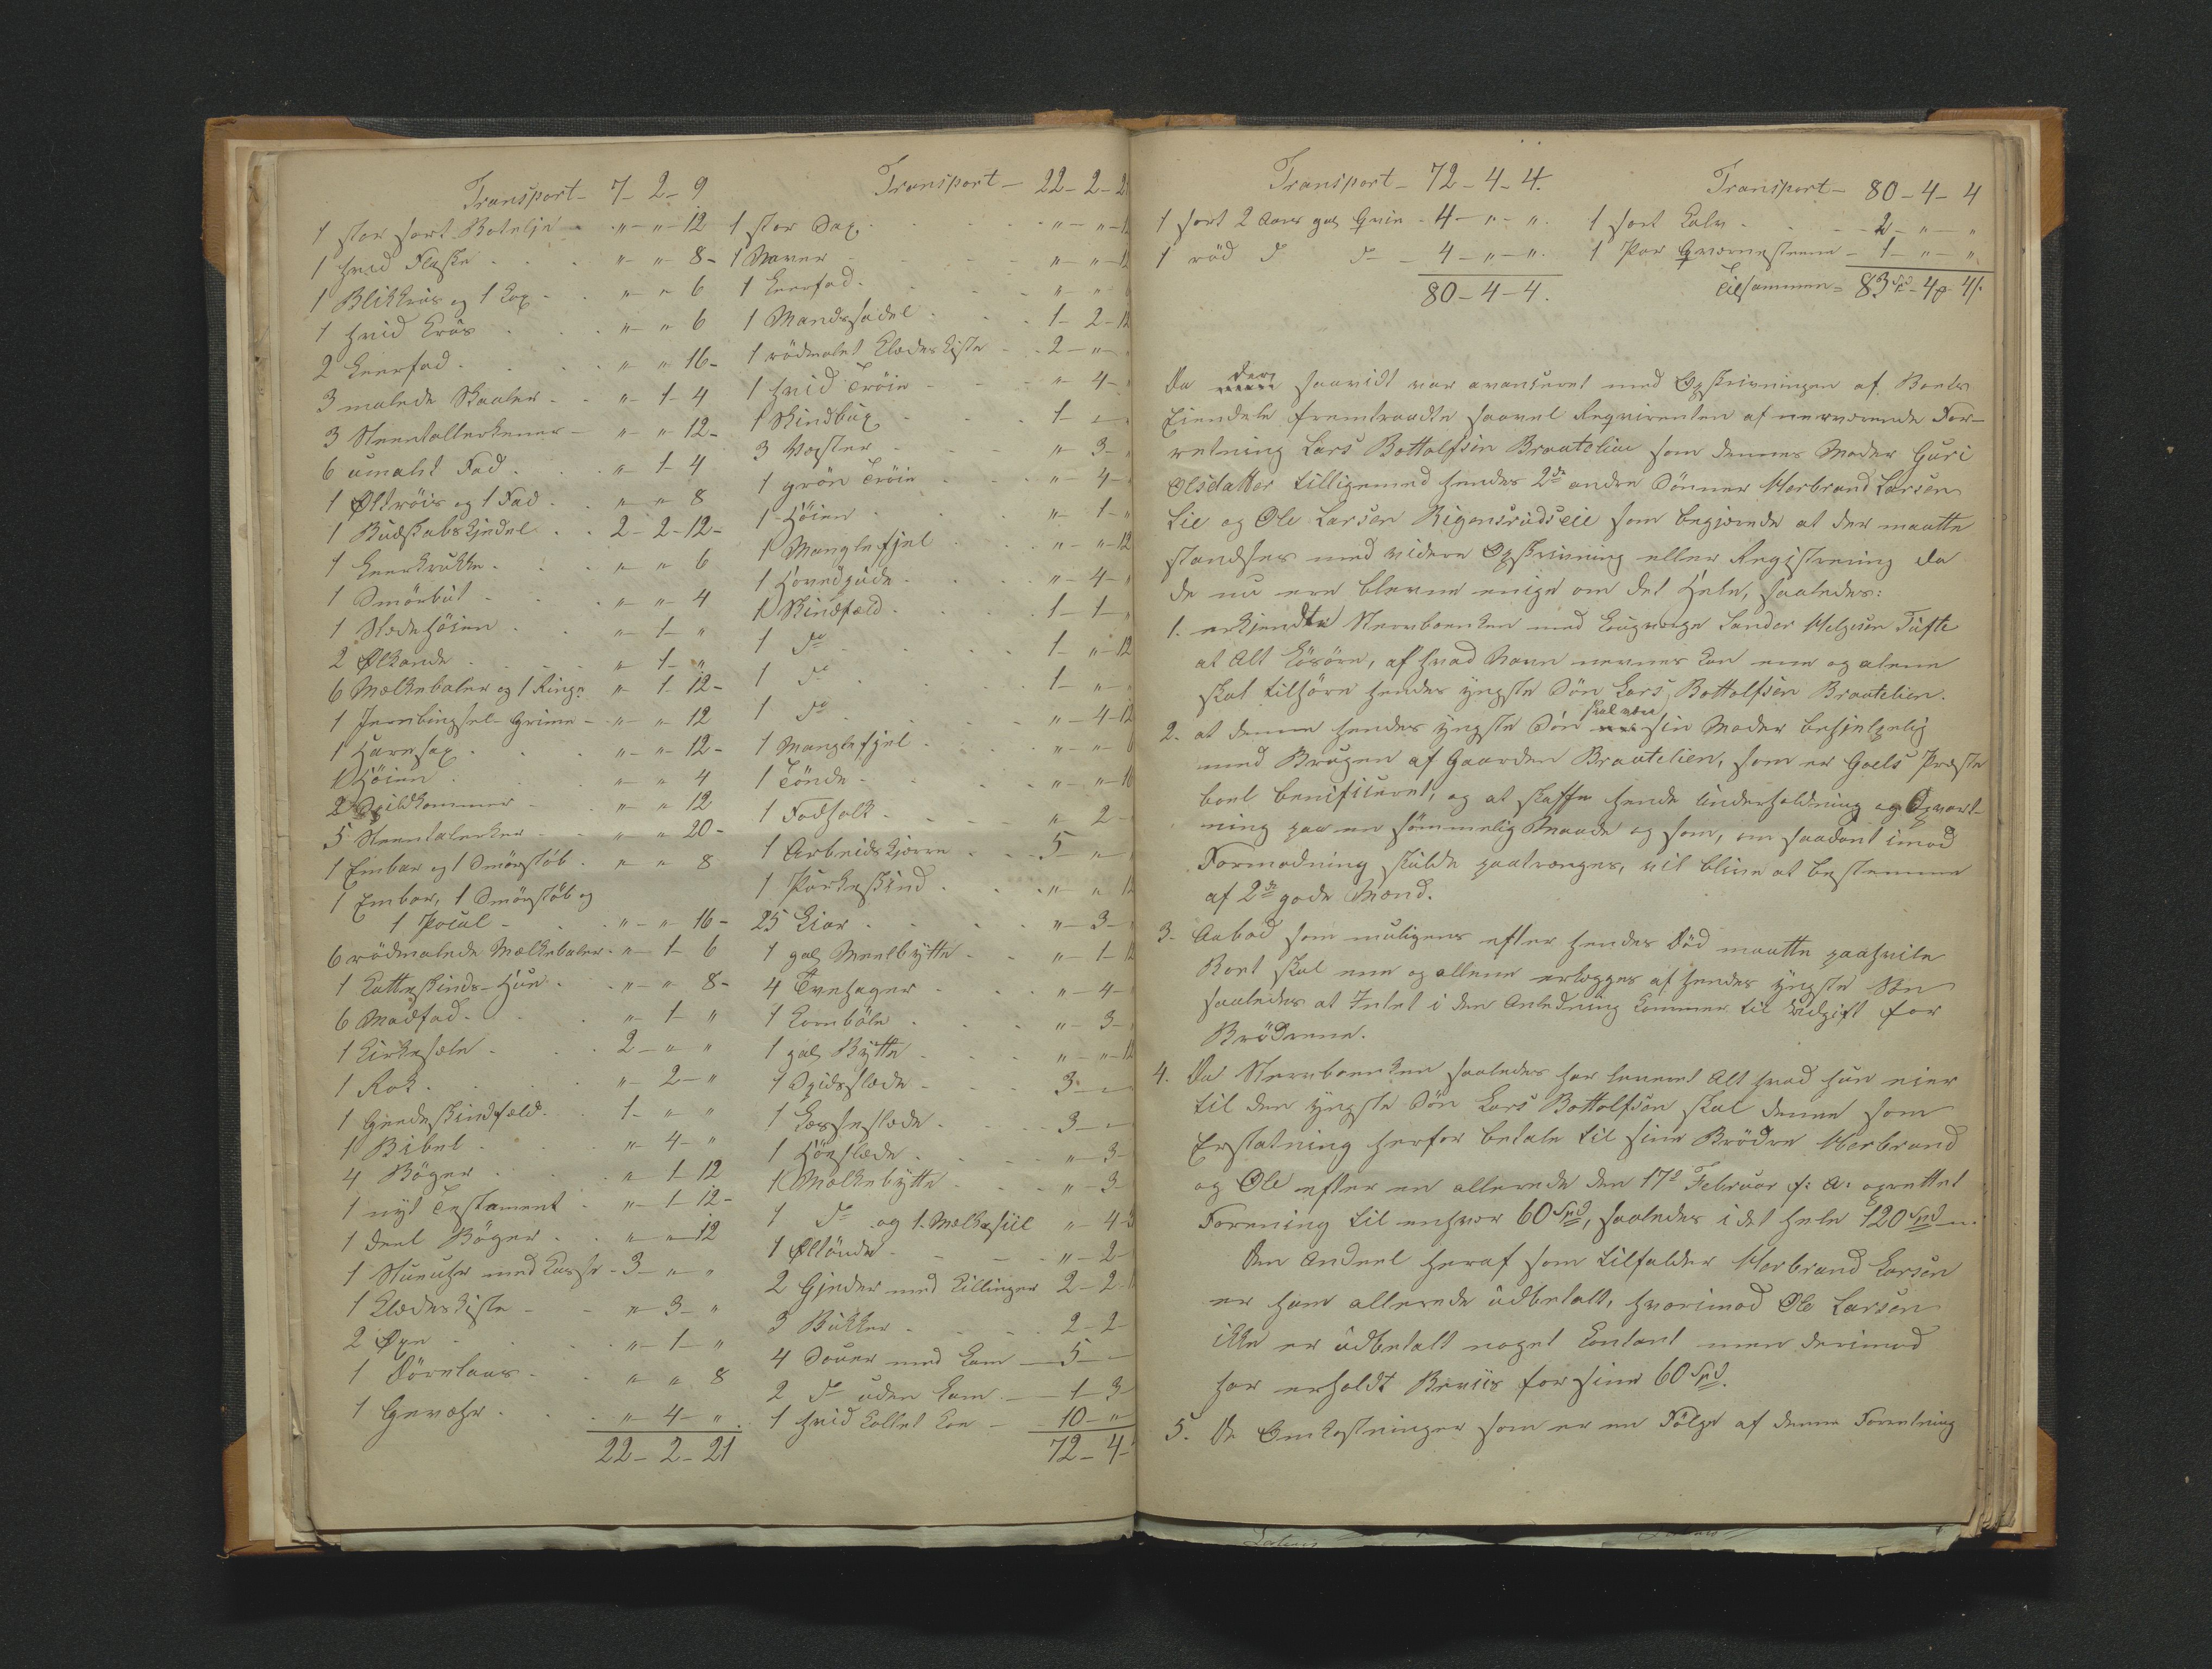 Transport - 7 - 2 - 9
1 stor sort Botelje - " - " - 12
1 hvid Flaske " - " 8 -
1 Blikkrus og 1 Kop - " - " 6
1 hvid Krus " - " 6
2 Leerfad " - " 16 -
3 malede Skaaler - " - 1 - 4
3 Steentallerkener - " - " 12 -
6 umalet Fad " - 1 - 4
1 Ølkrus og 1 Fad " - " 8
1 Budskabskjedel 2 - 2 - 12 -
1 Leerkrukke " - " 6
1 Smörbut " - " 4
1 Slædehöien " - 1 - "
2 Ølkande " - 1 - "
6 Melkebaler og 1 Ringe " 1 - 12 -
1 Grime - " - " 12
1 Haresax " - " 12 -
1 Höien " - " 4
2 " - " 12
5 Steentalerker " - " 20 -
1 Embar og 1 Smörstöb " - " 8
1 Embar, 1 Smörstöb og
1 " - " 16 -
6 rödmalede Melkebaler - " - 1 - 6
1 Katteskinds-Hue " - " 8 -
6 Madfad " - 1 - "
1 Kirkesæle 2 - " - "
1 Rok " - 2 - "
1 Gjedeskindfæld 1 - " - "
1 Bibel " - 4 - "
4 Böger " - 1 - 12
1 nyt Testament " - 1 - 12 -
1 deel Böger " - " - 12
1 Stueuhr med Kasse - 3 - " - "
1 Klædeskiste " - 3 - "
2 Øxe " - 1 - "
1 Dörelaas " - " 8
1 Gevæhr " - 4 - "
22 - 2 - 21
Transport - 22 - 2 - 2
1 stor Sax " - " - 1
1 Naver " - " - 12
1 Leerfad " - "
1 Mandssadel 1 - 2 - 12
1 rödmalet Klædeskiste 2 - "
1 hvid Tröie " 4 -
1 Skindbux 1 -
3 Vester " 3 -
1 grön Tröie " - 4 -
1 Höien " - 1 - "
1 Manglefjel " - " - 12
1 Hovedpude " - 4 -
1 Skindfæld 1 - 1 -
1 do 1 - " - 12
1 do 1 - "
1 do " - 4 - 12
1 Manglefjel " - "
1 Tönde " - " - 16
1 Fodfolk " 2 -
1 Arbeidskjærre 5 - "
1 Purkeskind " - " 12
25 Liar " - 3 -
1 gal Meelbytte " - 1 - 12
4 Tvehager " - 4 -
1 Kornböle " - 3 -
1 gal Bytte " - " - 12
1 Spidsslæde 3 -
1 Læsseslæde 3 -
1 Höeslæde " - 3 -
1 Melkebytte " - 3 -
1 do og 1 Melkesiil " 4 - 3
1 Øltönde " - 2 -
2 Gjeder med Killinger 2 - 2 -
3 Bukker 2 - 2 -
4 Souer med Lam - 5 -
2 do uden Lam - 1 - 3
1 hvid kollet Koe - 10 - "
72 - 4 -
Transport - 72 - 4 - 4.
1 sort 2 Aars gal Qvie - 4 - " - ".
1 röd d do - 4 - " - ".
80 - 4 - 4.
Transport - 80 - 4 - 4
1 sort Kalv - 2 - " - "
1 Par Qværnesteene - 1 - " - "
Tilsammen = 83 Sp - 4 - 4
Da der saavidt var avanseret med Opskrivningen af Boets
Eiendele fremtraadte saavel Reqvirenten af nærværende For-
retning Lars Bottolfsen Brautelien som dennes Moder Guri
Olsdatter tilligemed hendes 2de andre Sönner Herbrand Larsen
Lie og Ole Larsen Rigensrudseie som begjærede at der maatte
standses med videre Opskrivning eller Registrering da
de nu ere blevne enige om det Hele, saaledes:
1. erkjendte Stervboenken med Laugværge Sander Helgesen Tufte
at Alt Lösöre, af hvad Navn nevnes kan ene og alene
skal tilhöre hendes yngste Sön Lars Bottolfsen Brautelien.
2. at denne hendes yngste Sön skal være sin Moder behjelpelig
med Brugen af Gaarden Brautelien, som er Goels Præste
boel benificeret, og at skaffe hende Underholdning og Opvart-
ning paa en sömmelig Maade og som, om saadant imod
Formodning skulde paatrænges, vil blive at bestemme
af 2de gode Mænd.
3. Aabod som muligens efter hendes Död maatte paahvile
Boet skal ene og allene erlægges af hendes yngste Sön
saaledes at Intet i den Anledning kommer til Udgift for
Brödrene.
4. Da Stervboenken saaledes har leveret Alt hvad hun eier
til den yngste Sön Lars Bottolfsen skal denne som
Erstatning herfor betale til sine Brödre Herbrand
og Ole efter en allerede den 17de Februar f: A: oprettet
Forening til enhver 60 Spd, saaledes i det hele 120 Spd.
Den Andeel heraf som tilfalder Herbrand Larsen
er ham allerede udbetalt, hvorimod Ole Larsen
ikke er udbetalt noget Contant men derimod
har erholdt Beviis for sine 60 Spd.
5. De Omkostninger som er en Fölge af denne Forretning